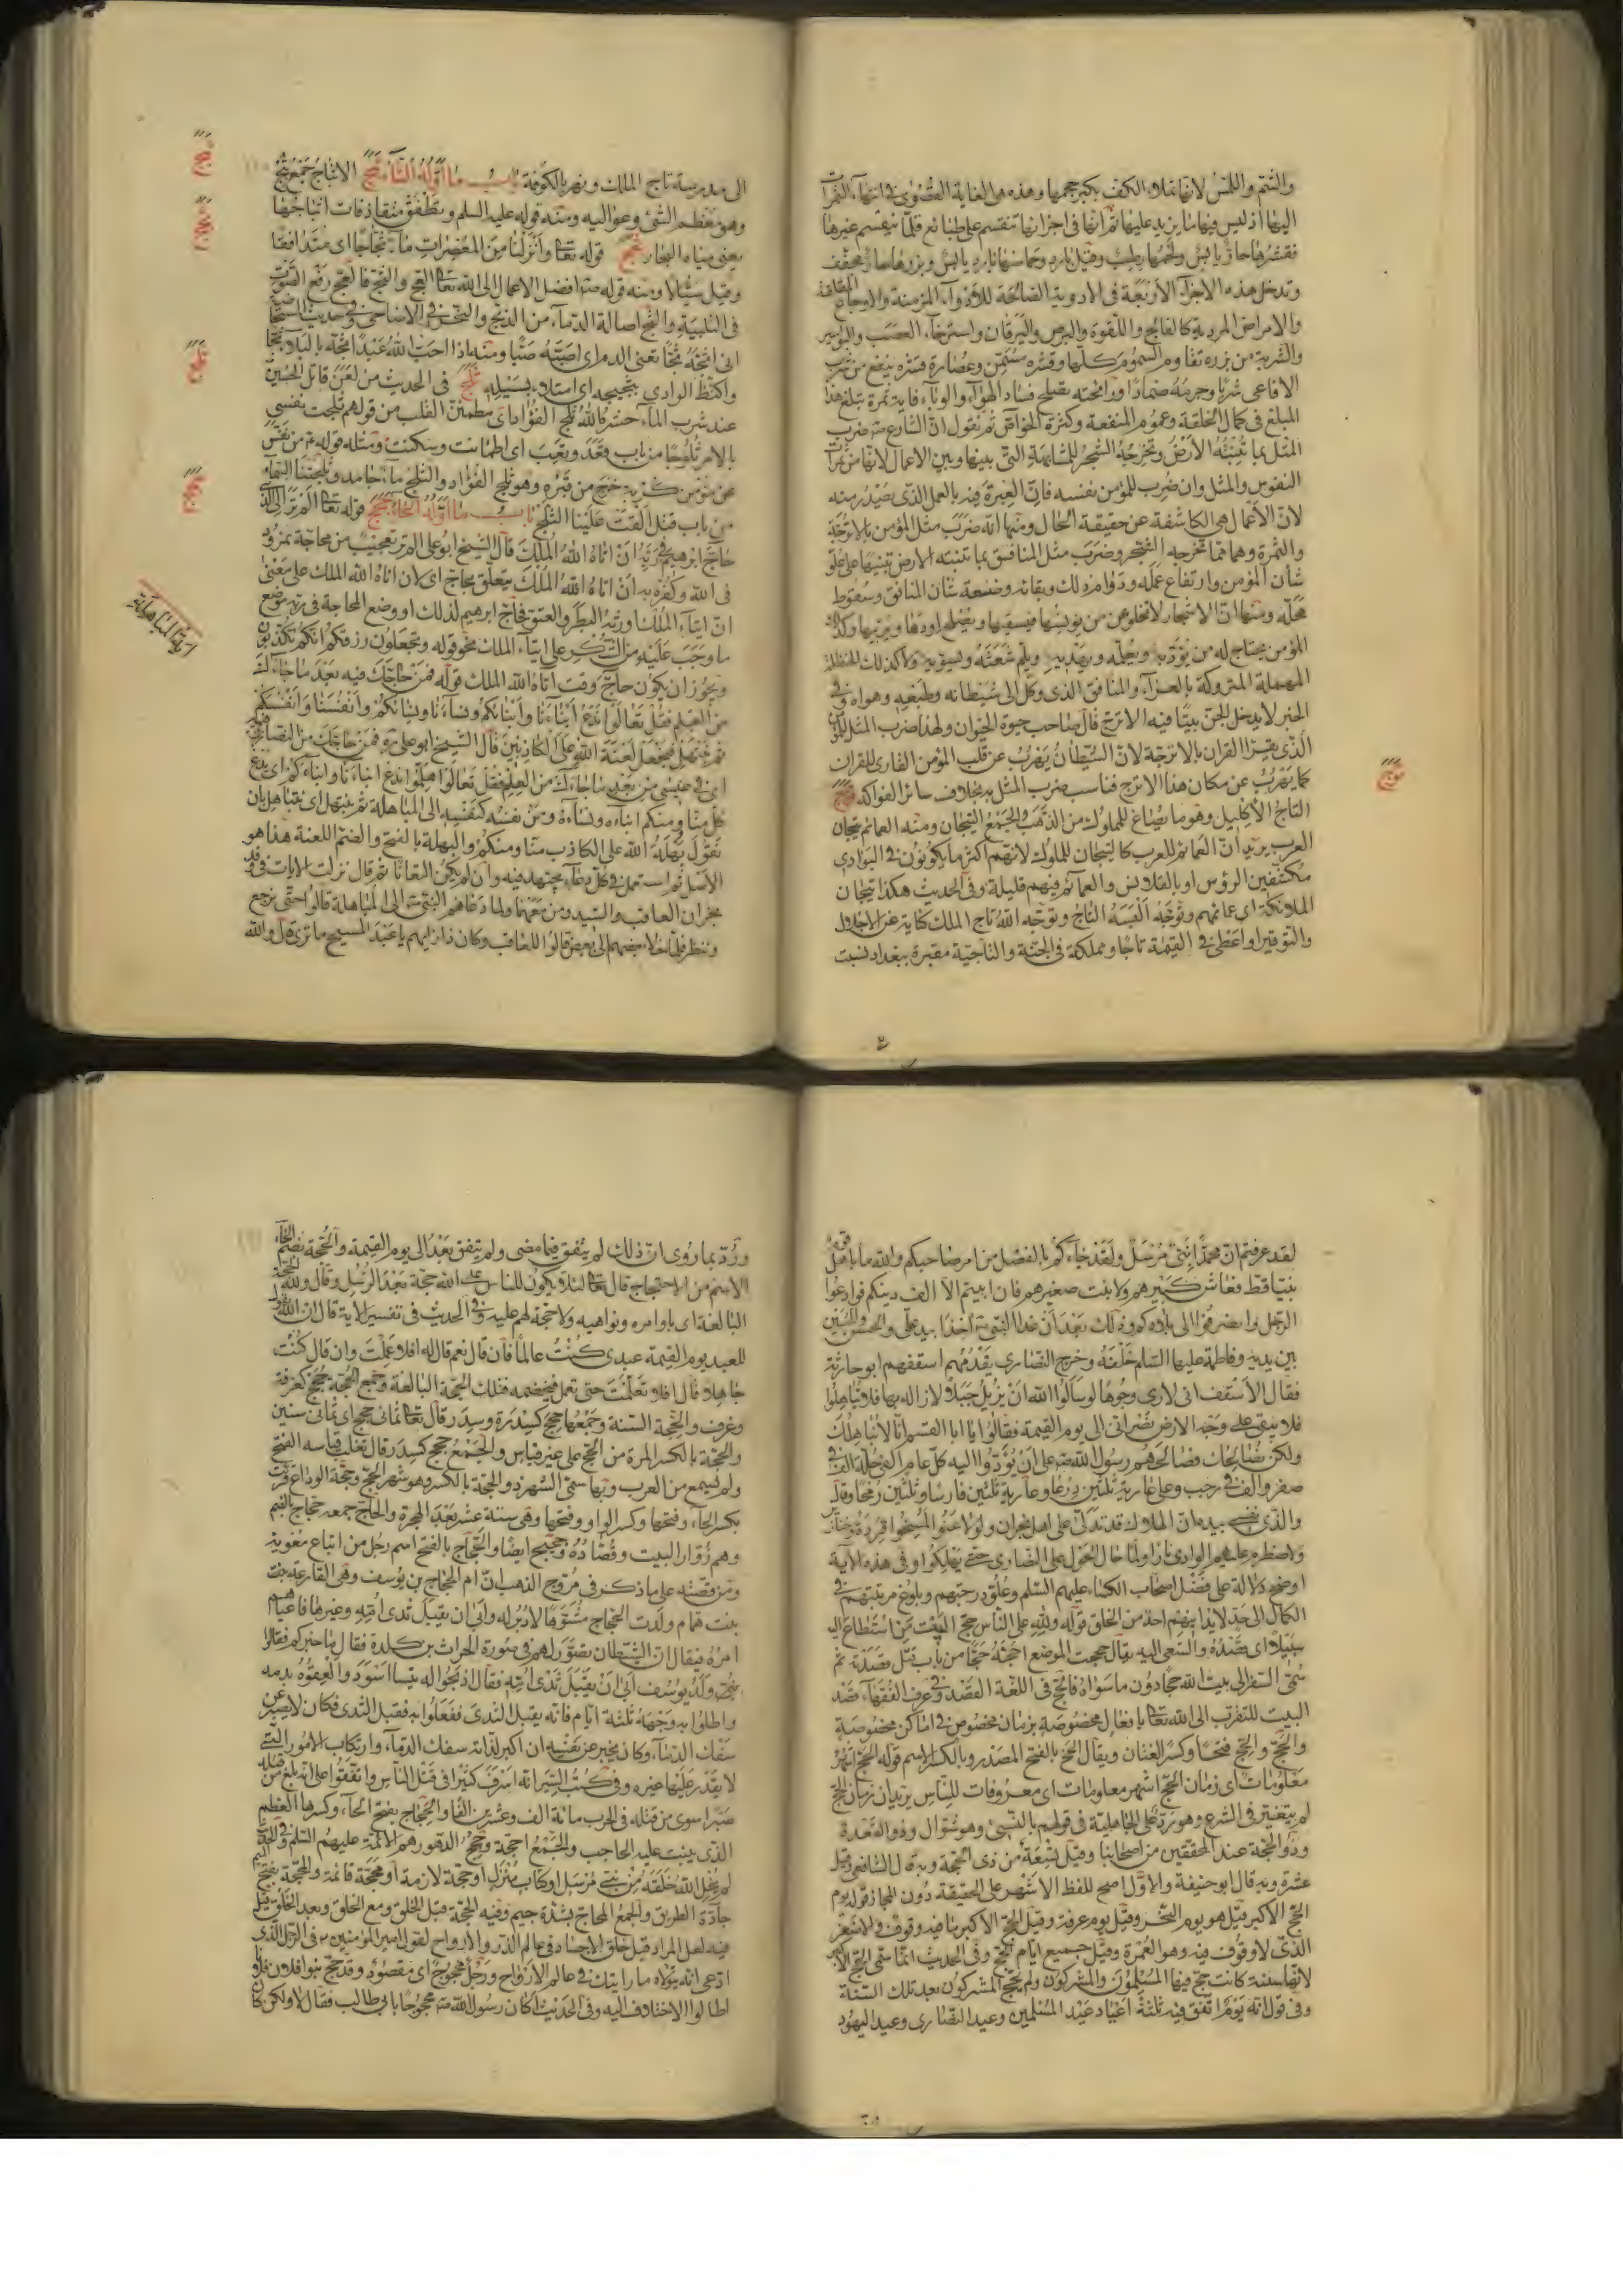 والشم واللمس لانها تملاء الكف بكبر حجمها وهذه هى الغاية القصوى فى انتهاء الثمرات
اليها اذ ليس فيها ما يزيد عليها ثم انها فى اجزائها تنقسم على طبائع فلما ينقسم غيرها
فقشرها حار يابس ولحمها رطب وقيل بارد وحماضها بارد يابس وبزرها حار مجفف
وتدخل هذه الاجزآء الاربعة فى الادوية الصالحة للادوآء المزمنة والاوجاع
والامراض المردية كالفالج واللقوة والبرص واليرقان واسترخآء العصب والبواسير
والشربة من بزره تقاوم السموم كلها وقشره مسمن وعصارة قشره ينفع من ضرب
الافاعى شربا وجرمه ضمادا ورائحته يصلح فساد الهوآء والوباء فاية ثمرة تبلغ هذا
المبلغ فى كمال الخلقة وعموم المنفعة وكثرة الخواص ثم نقول ان الشارع ضرب
المثل بما تنبته الارض وتخرجه الشجر للمشابهة التى بينها وبين الاعمال لانها من ثمرات
النفوس والمثل وان ضرب للمؤمن نفسه فان العبرة فيه بالعمل الذى يصدر منه
لان الاعمال هى الكاشفة عن حقيقة الحال ومنها انه ضرب مثل المؤمن بالاترجة
والثمرة وهما مما تخرجه الشجر وضرب مثل المنافق بما تنبته الارض تنبيها على علو
شأن المؤمن وارتفاع عمله ودوام ذلك وبقائه وضعة شان المنافق وسقوط
محله ومنها ان الاشجار لا تخلو عن من يونسها فيسقيها ويصلح اودها ويربيها وكذلك
المؤمن يحتاج له من يؤدبه ويعلمه ويهديه ويلم شعثه ويسويه ولا كذلك الحنظلة
المهملة المتروكة بالعرآء والمنافق الذى وكل الى شيطانه وطبعه وهواه وفى
الخبر لا يدخل الجن بيتا فيه الاترج قال صاحب حيوة الحيوان ولهذا ضرب المثل للمؤمن
الذى يقرا القران بالاترجة لان الشيطان يهرب عن قلب المؤمن القارى للقران
كما يهرب عن مكان هذا الاترج فناسب ضرب المثل به بخلاف سائر الفواكه توج
توج
التاج الاكليل وهو ما يصاغ للملوك من الذهب والجمع التيجان ومنه العمائم تيجان
العرب يريد ان العمائم للعرب كالتيجان للملوك لانهم اكثر ما يكونون فى البوادى
مكشفين الرؤس او بالقلانس والعمائم فيهم قليلة وفى الحديث هكذا تيجان
الملائكة اى عمائمهم وتوجه البسه التاج وتوجه الله تاج الملك كناية عن الاجلال
والتوقير او اعطى فى القيمة تاجا ومملكة فى الجنة والتاجية مقبرة ببغداد نسبت
الى مدرسة تاج الملك ونهر بالكوفة باب ما اوله الثاء ثبج الاثباج جمع ثبج
ثبج
وهو معظم الشئ وعواليه ومنه قوله عليه السلم وتطفق متقاذفات اثباجها
يعنى مياه البحار ثجج قوله تعا وانزلنا من المعصرات ماء ثجاجا اى متدافقا
ثجج
وقيل سيالا ومنه قوله ص افضل الاعمال الى الله تعا العج والثج فالعج رفع الصوت
فى التلبية والثج اسالة الدماء من الذبح والنحر فى الاضاحى وفى حديث المستحاضة
انى اثجه ثجا تعنى الدم اى اصبه صبا ومنه اذا احب الله عبدا ثجه بالبلاء ثجا
واكتظ الوادى بثجيجه اى امتلاء بسيله ثلج فى الحديث من لعن قاتل الحسين
ثلج
عند شرب الماء حشره الله ثلج الفؤاد اى مطمئن القلب من قولهم ثلجت نفسى
بالامر ثلوجا من باب قعد وتعب اى اطمانت وسكنت ومثله قوله ع من نفس
عن مؤمن كربة خرج من قبره وهو ثلج الفؤاد والثلج ماء جامد وثلجتنا السمآء
من باب قتل القت علينا الثلج باب ما اوله الحاء حجج قوله تعا الم تر الى الذى
حجج
حاج ابرهيم فى ربه ان اتاه الله الملك قال الشيخ ابو على الم تر تعجيب من محاجة نمرود
فى الله وكفره به ان اتاه الله الملك يتعلق بحاج اى لان اتاه الله الملك على معنى
ان ايتآء الملك اورثه البطر والعتو فحاج ابرهيم لذلك او وضع المحاجة فى ربه موضع
ما وجب عليه من الشكر على ايتآء الملك نحو قوله وتجعلون رزقكم انكم تكذبون
ويجوز ان يكون حاج وقت اتاه الله الملك قوله فمن حاجك فيه بعد ما جاءك
من العلم فقل تعالوا ندع ابناءنا وابناءكم ونساءنا ونساءكم وانفسنا وانفسكم
ثم نبتهل فنجعل لعنة الله على الكاذبين قال الشيخ ابو على ره فمن حاجك من النصارى فيه
اى فى عيسى من بعد ما جاءك من العلم فقل تعالوا هلموا ندع ابناءنا وابناءكم اى يدع
كل منا ومنكم ابناءه ونساءه ومن نفسه كنفسه الى المباهلة ثم نبتهل اى نتباهل بان
نقول بهلة الله على الكاذب منا ومنكم والبهلة بالفتح والضم اللعنة هذا هو
الاصل ثم استعمل فى كل دعآء يجتهد فيه وان لم يكن التعانا ثم قال نزلت الايات فى وفد
نجران العاقب والسيد ومن معهما ولما دعاهم النبى ص الى المباهلة قالوا حتى نرجع
وننظر فلما خلا بعضهم الى بعض قالوا للعاقب وكان ذا رايهم يا عبد المسيح ما ترى قال والله
لقد عرفتم ان محمدا نبى مرسل ولقد جاءكم بالفصل من امر صاحبكم والله ما باهل قوم
نبيا قط فعاش كبيرهم ولا نبت صغيرهم فان ابيتم الا الف دينكم فوادعوا
الرجل وانصرفوا الى بلادكم وذلك بعد ان غدا النبى ص اخذا بيد على والحسن والحسين
بين يديه وفاطمة عليها السلم خلفه وخرج النصارى يقدمهم اسقفهم ابو حارثة
فقال الاسقف انى لارى وجوها لو سالوا الله ان يزيل جبلا لازاله بها فلا تباهلوا
فلا يبقى على وجه الارض نصرانى الى يوم القيمة فقالوا يا ابا القسم انا لا نباهلك
ولكن نصالحك فصالحهم رسول الله ص على ان يؤدوا اليه كل عام الفى حلة الف فى
صفر والف فى رجب وعلى عارية ثلثين درعا وعارية ثلثين فارسا وثلثين رمحا وقال
والذى نفسى بيده ان الهلاك قد تدلى على اهل نجران ولو لاعنوا لمسخوا قردة وخنازير
ولاضطرم عليهم الوادى نارا ولما حال الحول على النصارى حتى يهلكوا وفى هذه الاية
اوضح دلالة على فضل اصحاب الكساء عليهم السلم وعلو درجتهم وبلوغ مرتبتهم فى
الكمال الى حد لا يدانيهم احد من الخلق قوله ولله على الناس حج البيت من استطاع اليه
سبيلا اى قصده والسعى اليه يقال حججت الموضع احجه حجا من باب قتل قصدته ثم
سمى السفر الى بيت الله حجا دون ما سواه فالحج فى اللغة القصد وفى عرف الفقهآء قصد
البيت للتقرب الى الله تعا بافعال مخصوصة بزمان مخصوص فى اماكن مخصوصة
والحج والحج فتحا وكسرا لغتان ويقال الحج بالفتح المصدر وبالكسر الاسم قوله الحج اشهر
معلومات اى زمان الحج اشهر معلومات اى معروفات للناس يريد ان زمان الحج
لم يتغير فى الشرع وهو رد على الجاهلية فى قولهم بالنسئ وهو شوال وذو القعدة
وذو الحجة عند المحققين من اصحابنا وقيل تسعة من ذى الحجة وبه قال الشافعى وقيل
عشرة وبه قال ابو حنيفة والاول اصح للفظ الاشهر على الحقيقة دون المجاز قوله يوم
الحج الاكبر قيل هو يوم النحر وقيل يوم عرفة وقيل الحج الاكبر ما فيه وقوف والاصغر
الذى لا وقوف فيه وهو العمرة وقيل جميع ايام الحج وفى الحديث انما سمى الحج الاكبر
لانها سنة كانت حج فيها المسلمون والمشركون ولم يحج المشركون بعد تلك السنة
وفى قول انه يوم اتفق فيه ثلثة اعياد عيد المسلمين وعيد النصارى وعيد اليهود
ورد بما روى ان ذلك لم يتفق فيما مضى ولم يتفق بعد الى يوم القيمة والحجة بضم الحاء
الاسم من الاحتجاج قال تعا لئلا يكون للناس على الله حجة بعد الرسل وقال ولله الحجة
البالغة اى باوامره ونواهيه ولا حجة لهم عليه وفى الحديث فى تفسير الاية قال ان الله يقول
للعبد يوم القيمة عبدى كنت عالما فان قال نعم قال له افلا عملت وان قال كنت
جاهلا قال افلا تعلمت حتى تعمل فيخصمه فتلك الحجة البالغة وجمع الحجة حجج كغرفة
وغرف والحجة السنة وجمعها حجج كسدرة وسدر قال تعا ثمانى حجج اى ثمانى سنين
والحجة بالكسر المرة من الحج على غير قياس والجمع حجج كسدر قال ثعلب قياسه الفتح
ولم يسمع من العرب وبها سمى الشهر ذو الحجة بالكسر وهو شهر الحج وحجة الوداع قرئت
بكسر الحاء وفتحها وكسر الواو وفتحها وهى سنة عشر بعد الهجرة والحاج جمعه حجاج بالضم
وهم زوار البيت وقصاده وحجيج ايضا والحجاج بالفتح اسم رجل من اتباع معوية
ومن قصته على ما ذكر فى مروج الذهب ان ام الحجاج بن يوسف وهى الفارعة
بنت همام ولدت الحجاج مشوها لا دبر له وابى ان يقبل ثدى امه وغيرها فاعياهم
امره فيقال ان الشيطان تصور لهم فى صورة الحرث بن كلدة فقال ما خبركم فقالوا
ولد يوسف ابى ان يقبل ثدى امه فقال اذبحوا له تيسا اسود والعقوه بدمه
واطلوا به وجهه ثلثة ايام فانه يقبل الثدى ففعلوا به فقبل الثدى فكان لا يصبر عن
سفك الدماء وكان يخبر عن نفسه ان اكبر لذاته سفك الدماء وارتكاب الامور التى
لا يقدر عليها غيره وفى كتب السير انه اسرف كثيرا فى قتل الناس واتفقوا على انه بلغ من قتله
صبرا سوى من قتله فى الحرب مائة الف وعشرين الفا والحجاج بفتح الحاء وكسرها العظم
الذى ينبت عليه الحاجب والجمع احجة وحجج الدهور هم الائمة عليهم السلم وفى الحديث
لم يخل الله خلقه من نبى مرسل او كتاب منزل او حجة لازمة او محجة قائمة والمحجة بفتح الميم
جادة الطريق والجمع المحاج بشدة جيم وفيه الحجة قبل الخلق ومع الخلق وبعد الخلق قيل
فيه لعل المراد قبل خلق الاجساد فى عالم الذر والارواح لقول امير المؤمنين ع فى الرجل الذى
ادعى انه يتولاه ما رايتك فى عالم الارواح ورجل محجوج اى مقصود وقد حج بنو فلان فلانا
اطالوا الاختلاف اليه وفى الحديث اكان رسول الله ص محجوجا بابى طالب فقال لا ولكن كان